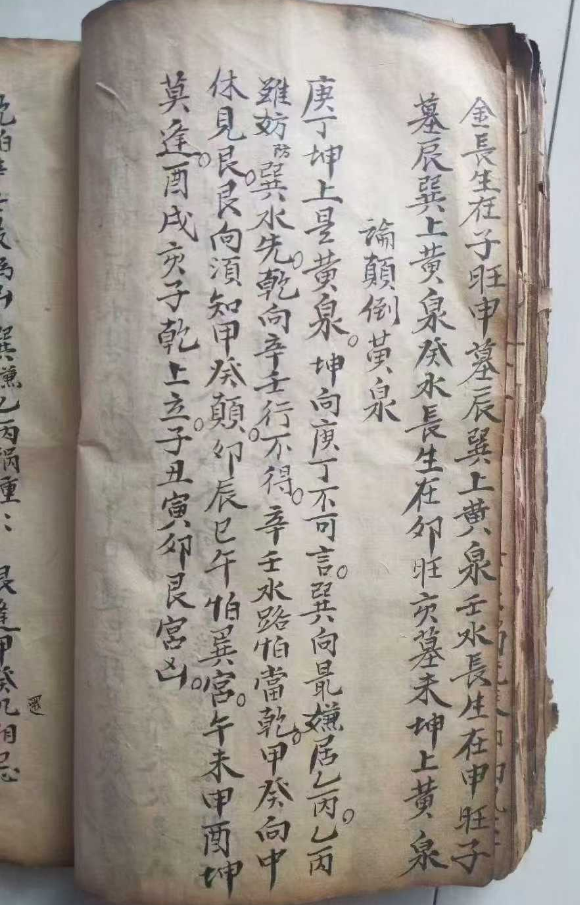 金長生在子旺申墓辰巽上黄泉壬水長生在申旺子
墓辰巽上黄泉癸水長生在卯旺亥墓未坤上黄泉
論顛倒黄泉
庚丁坤上是黄泉。坤向庚丁不可言。巽向最嫌居乙丙。乙丙
雖妨防巽水先。乾向辛壬行不得。辛壬水路怕當乾。甲癸向中
休見艮。艮向須知甲癸顛。卯辰巳午怕巽宮。午未申酉坤
莫逢。酉戌亥子乾上立。子丑寅卯艮宮凶。
巽嫌乙丙禍重〻 艮逢甲癸